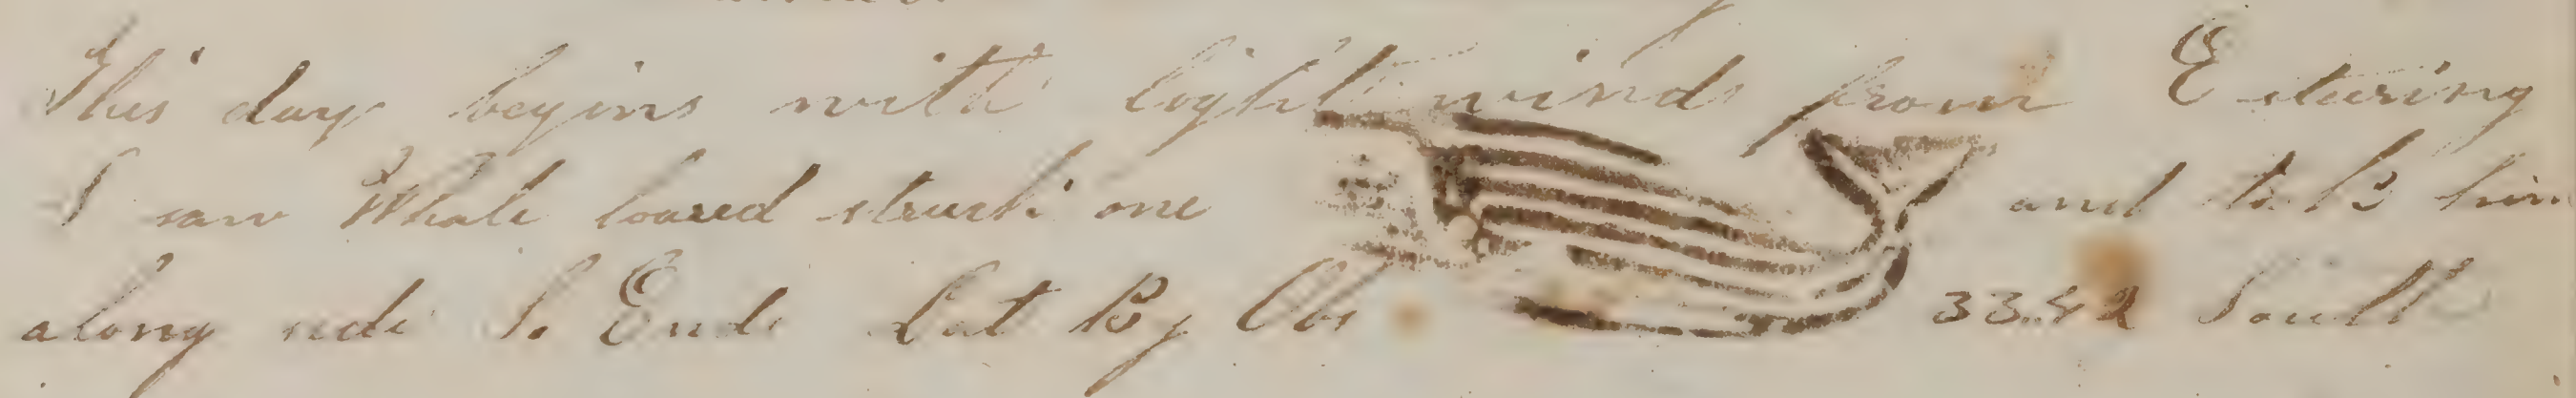 This day begins with light winds from E stering
S saw Whale loared struck one and to B him
along side So Ends Lat By Obs 33..42 South